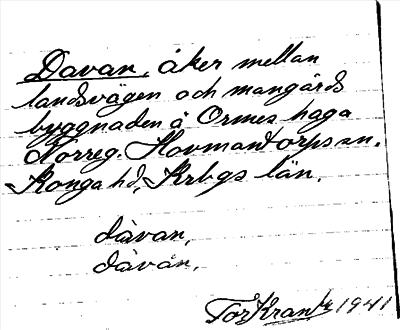 Davan, åker mellan
landsvägen och mangårds
byggnaden å Ormeshaga
Norreg. Hovmantorps sn.
Konga hd, Krbgs län.
davan,
davan,
Tor Krantz 1941